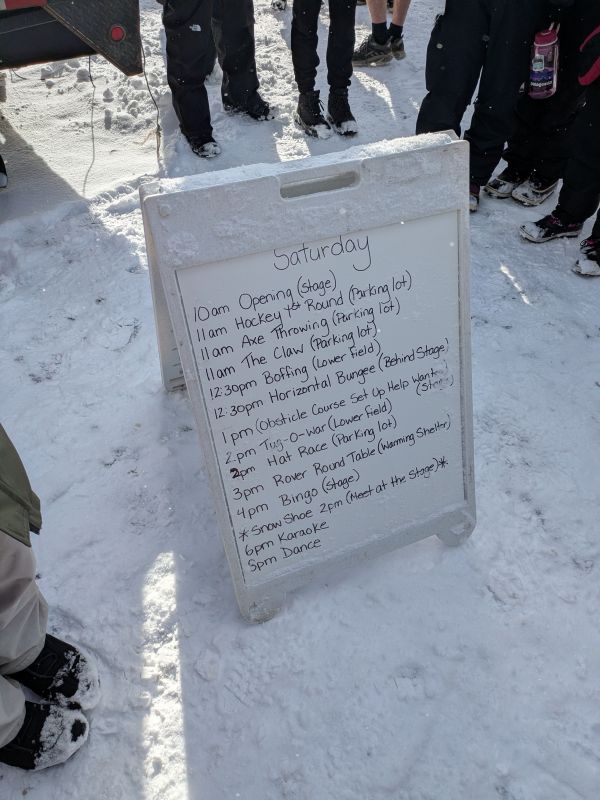 Saturday
10am Opening (Stage)
11am Hockey 1st Round (Parking lot)
11am Axe Throwing (Parking lot)
11am The Claw (Parking lot)
12:30pm Boffing (Lower Field)
12:30pm Horizontal Bungee (Behind Stage)
1pm (Obsticle Course Set Up Help Wanted
(Stage)
2pm Tug-O-War (Lower Field)
2pm Hat Race (Parking lot)
3pm Rover Round Table (Warming Shelter)
4pm Bingo (Stage)
*Snow Shoe 2pm (Meet at the Stage)*
6pm Karaoke
8pm Dance